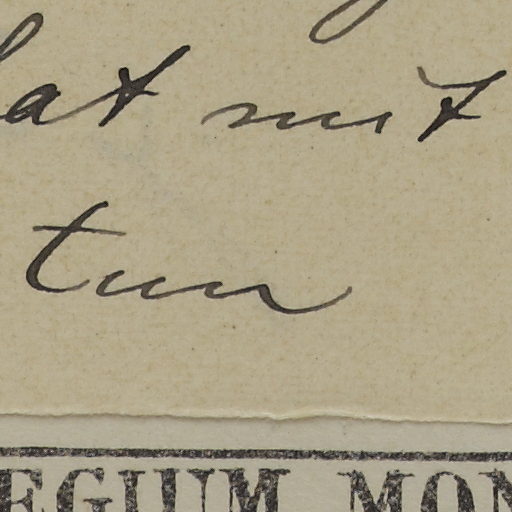 hat mit
tun
EGIUM MON